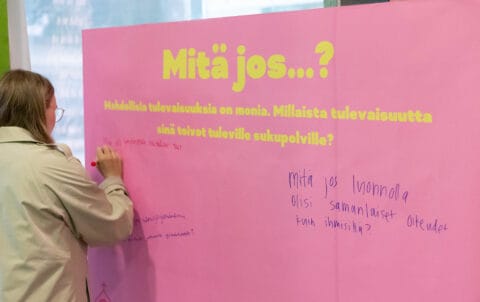 Mitä jos...?
Mahdollisia tulevaisuuksia on monia. Millaista tulevaisuutta
sinä toivot tuleville sukupolville?
mitä jos luonnolla
olisi samanlaiset oikeudet
kuin ihmisillä?